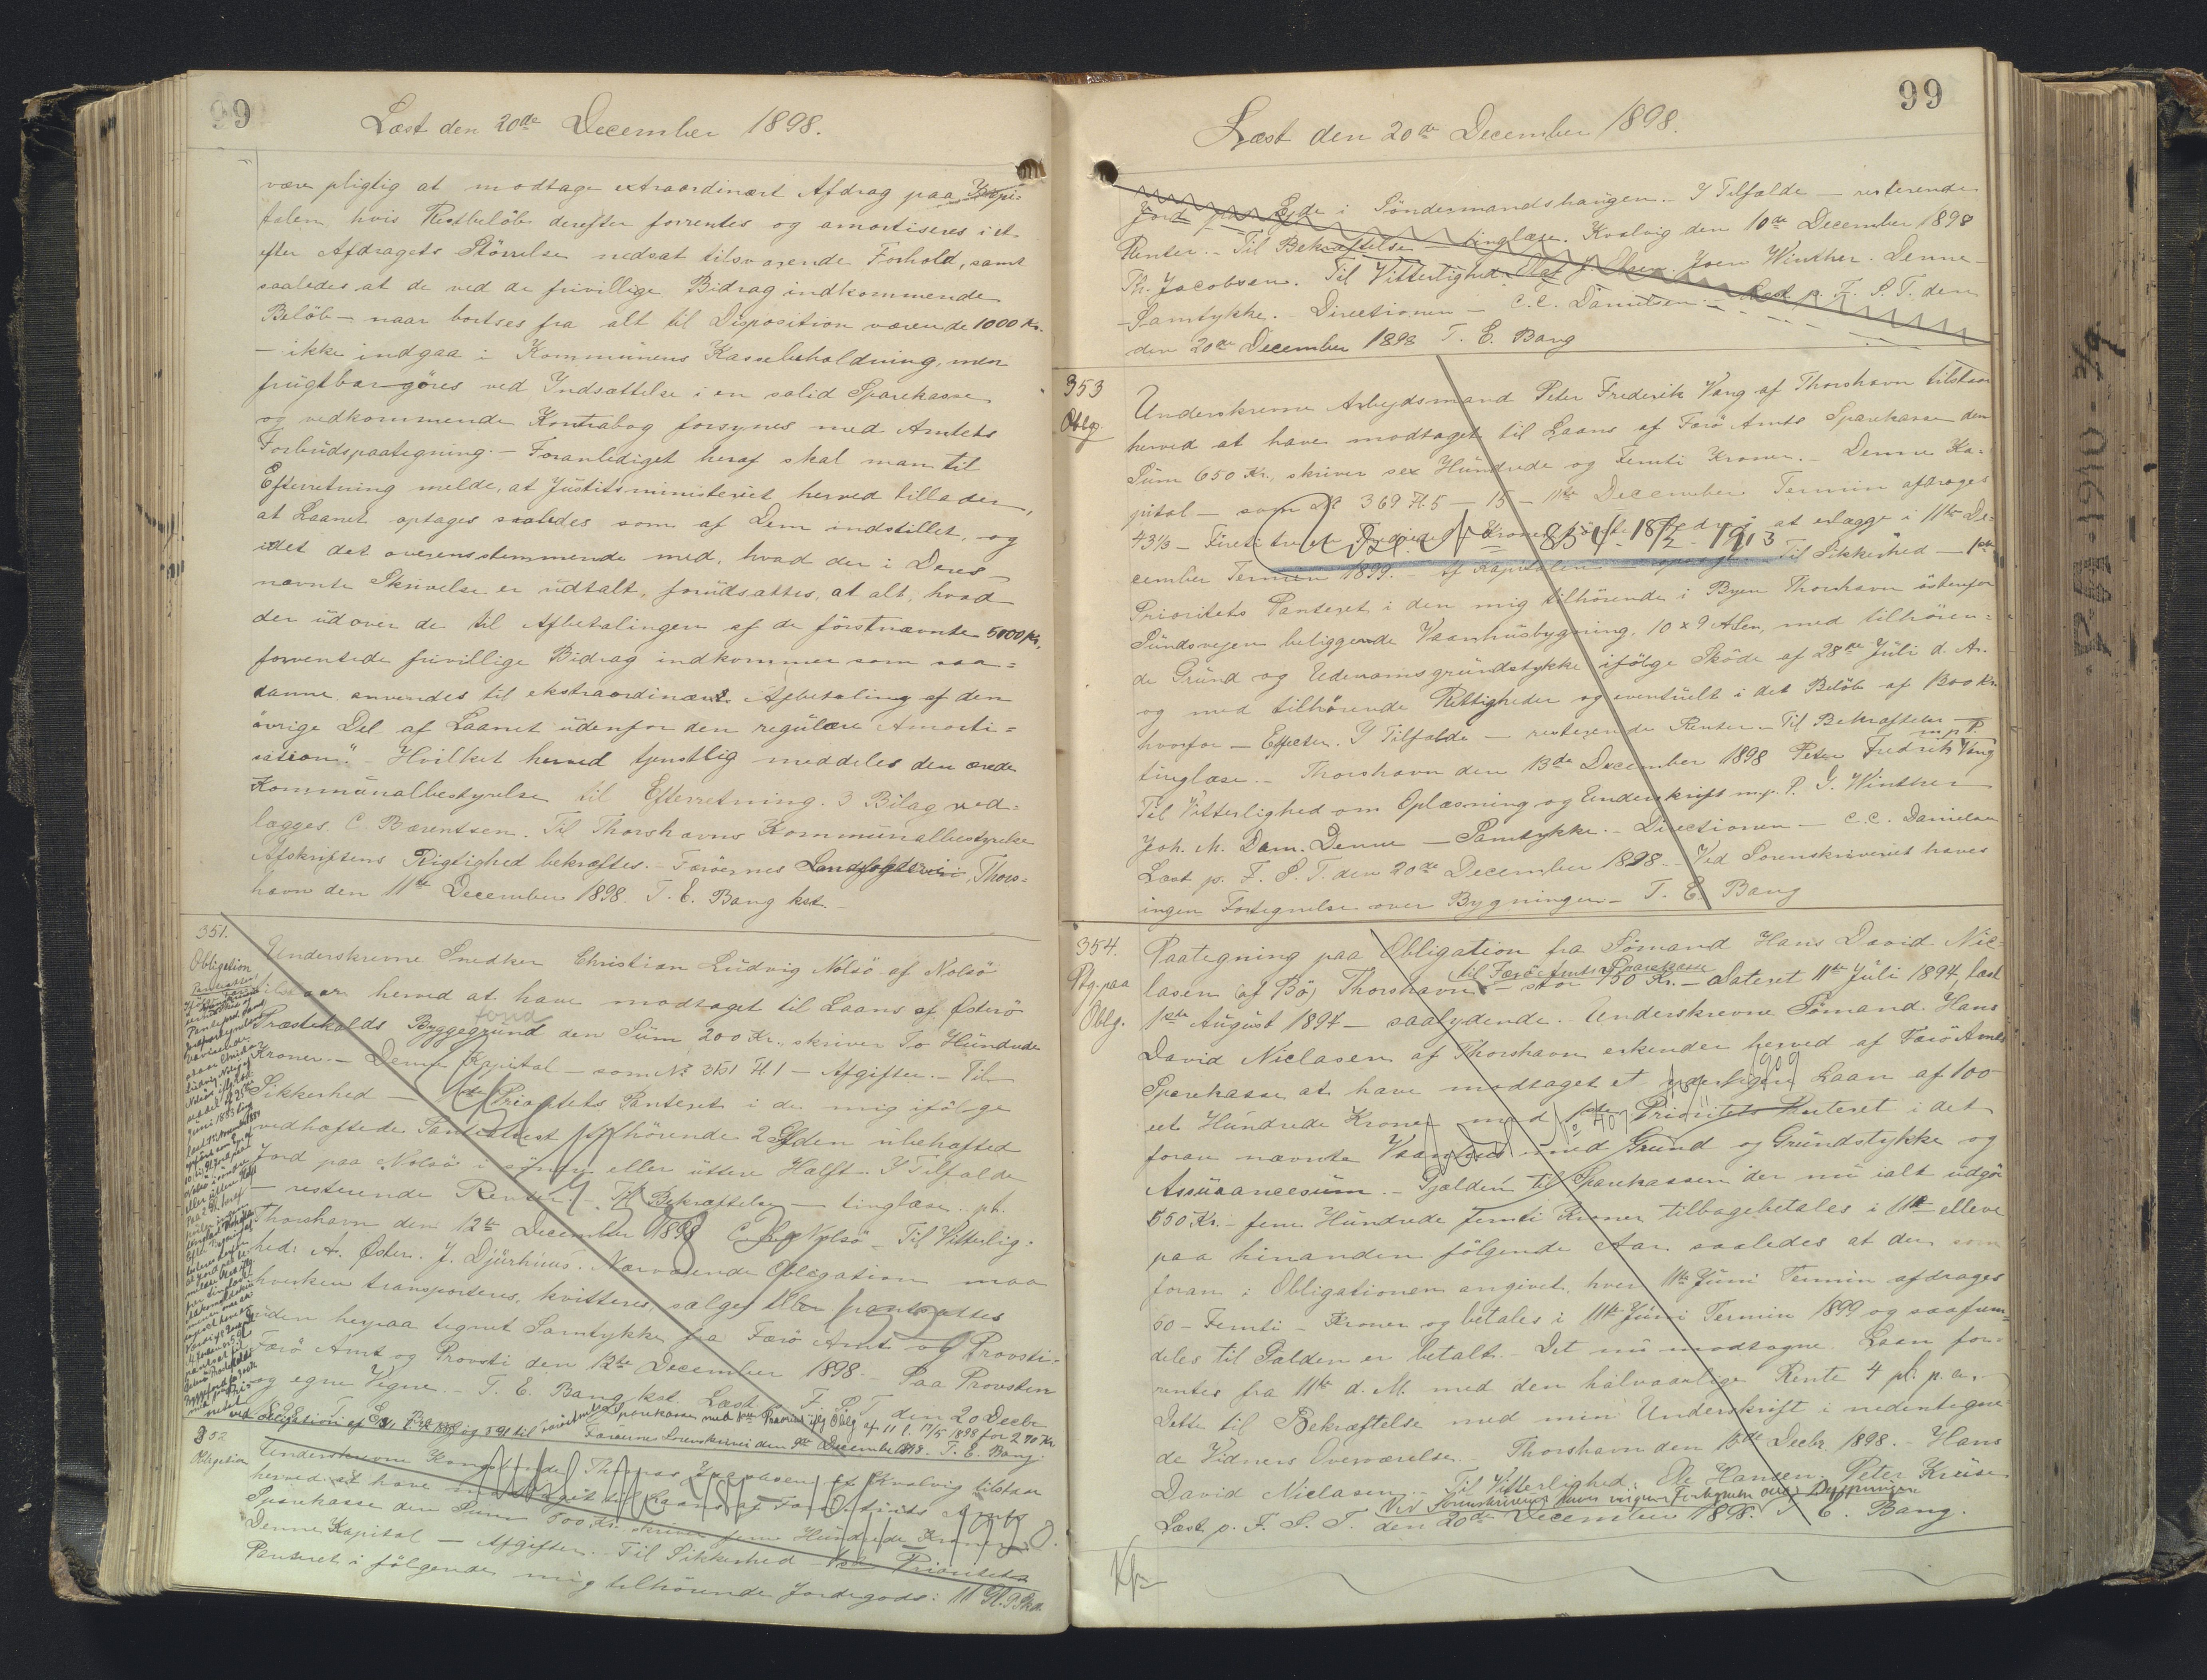 99
Læst den 20de December 1898.
være pligtig at modtage extraordinært Afdrag paa Kapi-
talen hvis Restbeløb derefter forrentes og amortiseres i et
efter Afdragets Störrelse nedsat tilsvarende Forhold, samt
saaledes at de ved de frivillige Bidrag indkommende
Belöb – naar bortses fra alt til Disposition værende 1000 Kr.
– ikke indgaa i Kommunens Kassebeholdning, men
frugtbargöres ved Indsættelse i en solid Sparekasse
og vedkommende Kontrabog forsynes med Amtets
Forbudspaategning. – Foranlediget heraf skal man til
Efterretning melde, at Justitsministeriet herved tillader,
at Laanet optages saaledes som af Dem indstillet, og
idet det overensstemmende med, hvad der i Deres
nævnte Skrivelse er udtalt, forudsættes, at alt, hvad
der udover de til Afbetalingen af de förstnævnte 5000 Kr.
forventede frivillige Bidrag indkommer som saa=
danne anvendes til ekstraordinært Afbetaling af den
övrige Del af Laanet udenfor den regulære Amorti=
sation." – Hvilket herved tjenstlig meddeles den ærede
Kommunalbestyrelse til Efterretning. 3 Bilag ved=
lægges. C. Bærentsen. Til Thorshavns Kommunalbestyrelse
Afskriftens Rigtighed bekræftes. – Færöernes Landfogderi Thors=
havn den 11te December 1898. T. E. Bang kst. –
351.
Obligation
Underskrevne Snedker Christian Ludvig Nolsö af Nolsö
tilstaar herved at have modtaget til Laans af Österö
fond
Præstekalds Byggegrund den Sum 200 Kr., skriver To Hundrede
Kroner. – Denne Kapital – som No 351 H. 1 – Afgifter. – Til
Sikkerhed – 1ste Prioritets Panteret i de mig ifölge
vedhæftede tilhörende 2 Gylden ubehæfted
Jord paa Nolsö i söndre eller üttere Halft. I Tilfælde
– resterende Renter. – Til Bekræftelse – tinglæse. pt.
Thorshavn den 12te December 1898 C. Nolsö – Til Vitterlig-
hed: A. Öster. J. Djurhuus. Nærværende Obligation maa
hverken transporteres, kvitteres, sælges eller pantsættes
uden herpaa tegnet Samtykke fra Færö Amt og Provsti.
Færö Amt og Provsti den 12te December 1898. – Paa Provsten
og egne Vegne. – T. E. Bang kst. Læst p. F. S. T. den 20 Decbr
1898. T. E. Bang
Færöernes Sorenskriveri den December 1898. T. E. Bang.
352
Obligation
Underskrevne Kongsbonde Thomas Jacobsen af Kvalvig tilstaar
herved at have modtaget til Laans af Færö Amts
Sparekasse den Sum 500 Kr. skriver fem Hundrede Kroner.
Denne Kapital – Afgifter. – Til Sikkerhed – 1ste Prioritets
Panteret i fölgende mig tilhörende Jordegods: 11 Gl.
99
Læst den 20de December 1898.
Jord paa Eide i Söndermandshaugen. – I Tilfælde – resterende
Renter. – Til Bekræftelse – tinglæse. Kvalvig den 10de December 1898
Th. Jacobsen. Til Vitterlighed: Olaf J. Olsen. Joen Winther. Denne –
– Samtykke. – Directionen – C. C. Danielsen. – Læst p. F. S. T. den
den 20de December 1898 T. E. Bang
353
Oblg.
Underskrevne Arbejdsmand Peter Frederik Vang af Thorshavn tilstaar
herved at have modtaget til Laans af Færö Amts Sparekasse den
Sum 650 Kr., skriver sex Hundrede og Femti Kroner. – Denne Ka-
pital – som No 369 H. 5 – 15 – 11te December Termin afdrages
43⅓ – Kroner at erlægge i 11te De-
834 18/2 1913
cember Termin 1899. – Af Kapitalen – Til Sikkerhed – 1ste
Prioritets Panteret i den mig tilhörende i Byen Thorshavn östenfor
Sundsvejen beliggende Vaanhusbygning, 10 x 9 Alen, med tilhören=
de Grund og Udenomsgrundstykke ifölge Sköde af 28de Juli d. A.
og med tilhörende Rettigheder og eventuelt i det Belöb af 1300 Kr.
hvorfor – Effecter. I Tilfælde – resterende Renter – Til Bekræftelse –
m. p. P.
tinglæse. – Thorshavn den 13de December 1898 Peter Fredrik Vang
Til Vitterlighed om Oplæsning og Underskrift m. p. P. J. Winther
Joh. M. Dam. Denne – Samtykke. – Directionen – C. C. Danielsen
Læst p. F. S. T. den 20de December 1898. – Ved Sorenskriveriet haves
ingen Fortegnelse over Bygningen – T. E. Bang
354.
Ptg. paa
Oblg.
Paategning paa Obligation fra Sömand Hans David Nic-
til Færö Amts Sparekasse
lasen (af Bö) Thorshavn – stor 150 Kr. – dateret 11te Juli 1894, læst
1ste August 1894 – saalydende. – Underskrevne Sömand Hans
David Niclasen af Thorshavn erkender herved af Færö Amts
1909
Sparekasse at have modtaget et yderligere Laan af 100
eet Hundrede Kroner mod 1ste Prioritets Panteret i det
foran nævnte Vaanhus med Grund og Grundstykke og
Assurancesum. – Gjælden til Sparekassen der nu ialt udgör
550 Kr. – fem Hundrede Femti Kroner tilbagebetales i 11 – elleve
paa hinanden fölgende Aar saaledes at der som
foran i Obligationen angivet, hver 11te Juni Termin afdrages
50 – Femti – Kroner og betales i 11te Juni Termin 1899 og saafrem=
deles til Gælden er betalt. – Det nu modtagne Laan for=
rentes fra 11te d. M. med den halvaarlige Rente 4 pCt. p. a. –
Dette til Bekræftelse med min Underskrift i nedentegne
de Vidners Overværelse. Thorshavn den 15de Decbr. 1898. – Hans
David Niclasen. – Til Vitterlighed: Ole Hansen. Peter Kruse
Ved Sorenskriveriet haves ingen Fortegnelse over Bygningen
Læst p. F. S. T. den 20de December 1898. T. E. Bang.